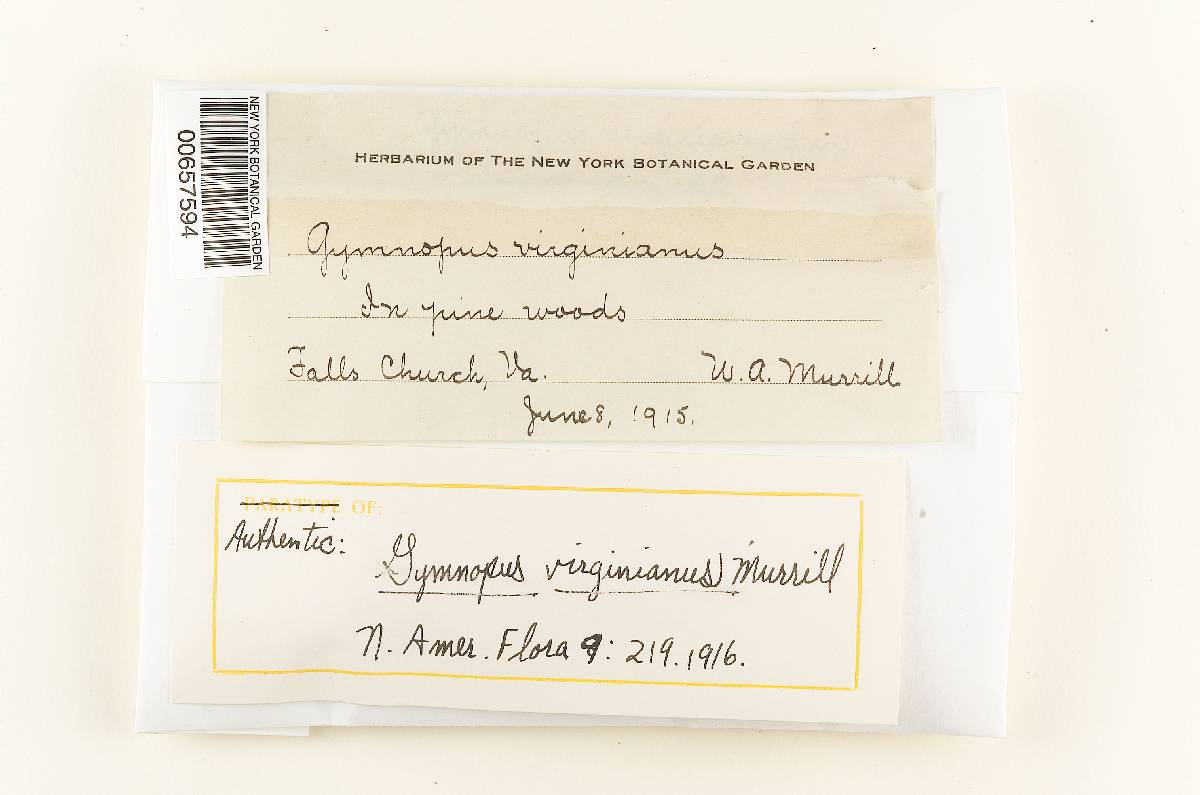 NEW YORK BOTANICAL GARDEN
00657594
HERBARIUM OF THE NEW YORK BOTANICAL GARDEN
Gymnopus virginianus
In pine woods
Falls Church, Va. W. A. Murrill
June 8, 1915.
PARATYPE OF:
Authentic:
Gymnopus virginianus Murrill
N. Amer. Flora 9: 219. 1916.